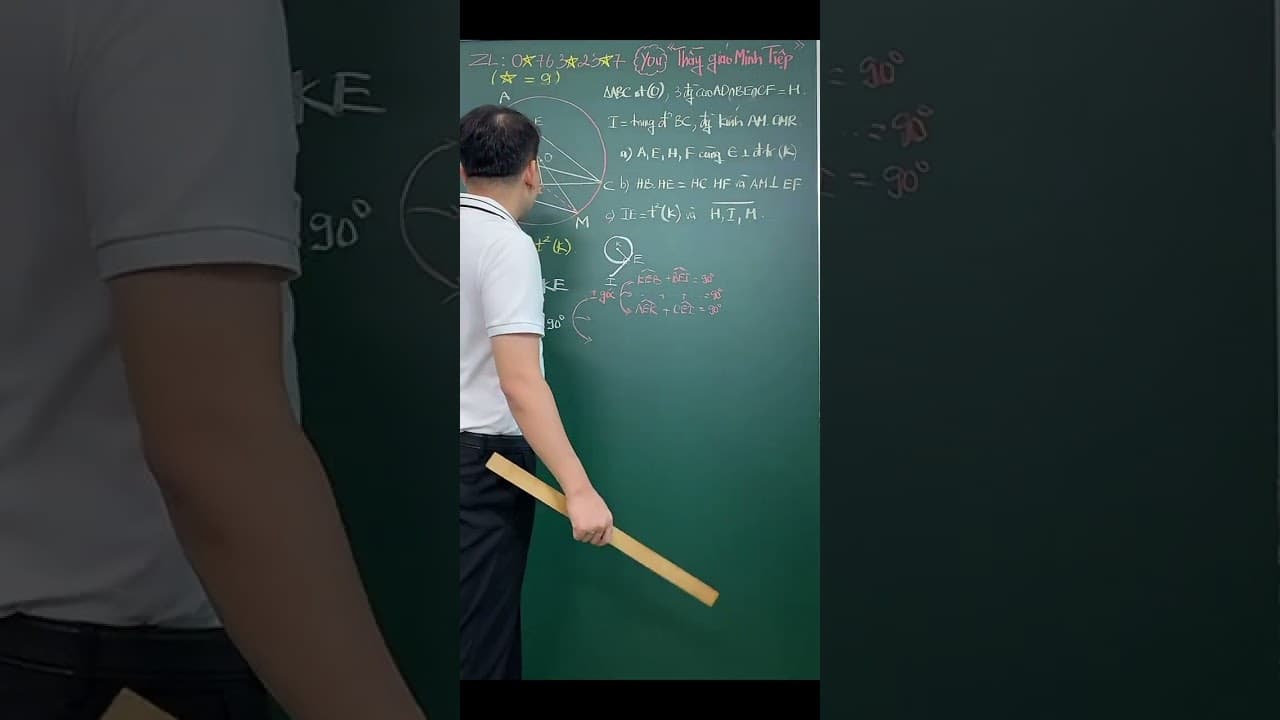 ZL: 0★763★23★7 You "Thầy giáo Minh Tiệp"
(★ = 9)
ΔABC nt (O), 3 đg cao AD∩BE∩CF = H.
I = trung đ² BC, đg kính AM
a) A, E, H, F cùng ∈ 1 đtr (K)
b) HB.HE = HC HF và AM⊥EF
c) IE = t²(K) và H, I, M
A
E
O
C
M
t²(K).
K
E
I
KE
90°
1 góc
KEB + BEI = 90°
= 90°
AEK + CEI = 90°
KE
90°
= 90°
= 90°
= 90°